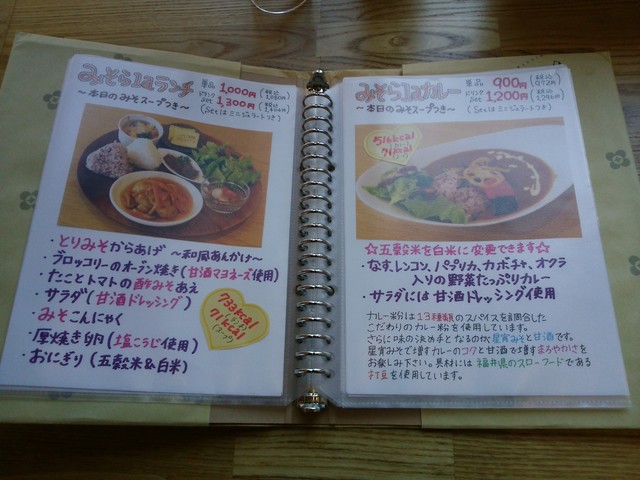 みそらlaランチ
～本日のみそスープつき～
単品 1,000円 (税込 1,080円)
ドリンクSet 1,300円 (税込
(Setはミニジェラートつき)
・とりみそからあげ ～和風あんかけ～
・ブロッコリーのオーブン焼き(甘酒マヨネーズ使用)
・たことトマトの酢みそあえ
・サラダ(甘酒ドレッシング)
・みそこんにゃく
・厚焼き卵(塩こうじ使用)
・おにぎり(五穀米&白米)
733kcal
71kcal
(スープ)
みそらlaカレー
～本日のみそスープつき～
単品 900円 (税込 972円)
ドリンクSet 1,200円 (税込 1,296円)
(Setはミニジェラートつき)
516kcal
71kcal
(スープ)
☆五穀米を白米に変更できます☆
・なす、レンコン、パプリカ、カボチャ、オクラ
入りの野菜たっぷりカレー
・サラダには甘酒ドレッシング使用
カレー粉は13種類のスパイスを調合した
こだわりのカレー粉を使用しています。
さらに味の決め手となるのが星宵みそと甘酒です。
星宵みそで増すカレーのコクと甘酒で増すまろやかさを
お楽しみ下さい。具材には福井県のスローフードである
打豆を使用しています。